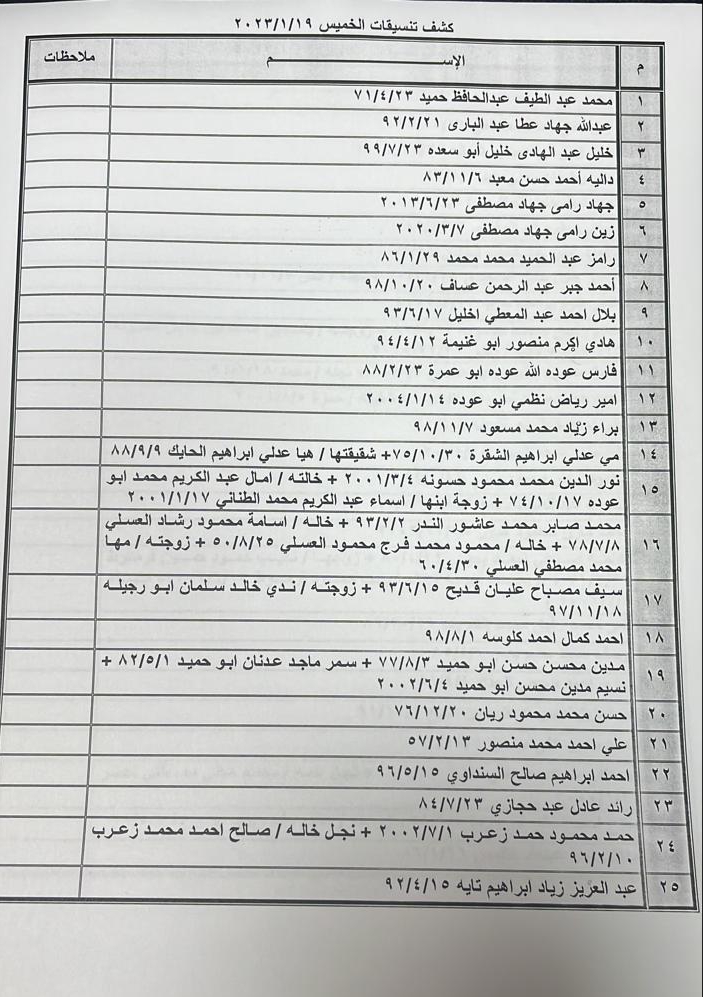 كشف تنسيقات الخميس ٢٠٢٣/١/١٩
م الإســـــــــــــــــــــم ملاحظات
١ محمد عبد الطيف عبدالحافظ حميد ٧١/٤/٢٣
٢ عبدالله جهاد عطا عبد البارى ٩٢/٢/٢١
٣ خليل عبد الهادى خليل أبو سعده ٩٩/٧/٢٣
٤ داليه أحمد حسن معبد ٨٣/١١/٦
٥ جهاد رامى جهاد مصطفى ٢٠١٣/٦/٢٣
٦ زين رامى جهاد مصطفى ٢٠٢٠/٣/٧
٧ رامز عبد الحميد محمد محمد ٨٦/١/٢٩
٨ أحمد جبر عبد الرحمن عساف ٩٨/١٠/٢٠
٩ بلال احمد عبد المعطي اخليل ٩٣/٦/١٧
١٠ هادي اكرم منصور ابو غنيمة ٩٤/٤/١٢
١١ فارس عوده الله عوده ابو عمرة ٨٨/٢/٢٣
١٢ امير رياض نظمي ابو عوده ٢٠٠٤/١/١٤
١٣ براء زياد محمد مسعود ٩٨/١١/٧
١٤ مي عدلي ابراهيم الشقرة ٧٥/١٠/٣٠+ شقيقتها / هيا عدلي ابراهيم الحايك ٨٨/٩/٩
١٥ نور الدين محمد محمود حسونه ٢٠٠١/٣/٤ + خالته / امال عبد الكريم محمد ابو
عوده ٧٤/١٠/١٧ + زوجة ابنها / اسماء عبد الكريم محمد الطناني ٢٠٠١/١/١٧
١٦ محمد صابر محمد عاشور الندر ٩٣/٢/٢ + خاله / اسامة محمود رشاد العسلي
٧٨/٧/٨ + خاله / محمود محمد فرج محمود العسلي ٥٠/٨/٢٥ + زوجته / مها
محمد مصطفي العسلي ٦٠/٤/٣٠
١٧ سيف مصباح عليان قديح ٩٣/٦/١٥ + زوجته / ندي خالد سلمان ابو رجيله
٩٧/١١/١٨
١٨ احمد كمال احمد كلوسه ٩٨/٨/١
١٩ مدين محسن حسن ابو حميد ٧٧/٨/٣ + سمر ماجد عدنان ابو حميد ٨٢/٥/١ +
نسيم مدين محسن ابو حميد ٢٠٠٢/٦/٤
٢٠ حسن محمد محمود ريان ٧٦/١٢/٢٠
٢١ علي احمد محمد منصور ٥٧/٢/١٣
٢٢ احمد ابراهيم صالح السنداوي ٩٦/٥/١٥
٢٣ رائد عادل عبد حجازي ٨٤/٧/٢٣
٢٤ حمد محمود حمد زعرب ٢٠٠٢/٧/١ + نجل خاله / صالح احمد محمد زعرب
٩٦/٢/١٠
٢٥ عبد العزيز زياد ابراهيم تايه ٩٢/٤/١٥